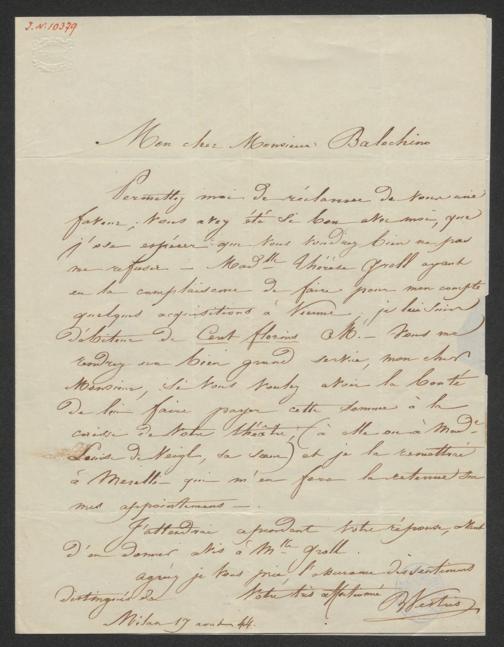 J.N. 10379
Mon cher Monsieur Balochino
Permettez moi de réclamer de vous une
faveur; vous avez été si bon avec moi, que
j'ose espérer que vous voudrez bien ne pas
me refuser — Madlle Thérèse Groll ayant
eu la complaisance de faire pour mon compte
quelques acquisitions à Vienne, je lui suis
débiteur de Cent florins M. — Vous me
rendrez un bien grand service, mon cher
Monsieur, si vous voulez avoir la bonté
de lui faire payer cette somme à la
caisse de votre théâtre, (à elle ou à Made
Louise de sa sœur) et je la remettrai
à Merelli qui m'en fera la retenue sur
mes appointements —.
J'attendrai cependant votre réponse, avant
d'en donner avis à Mlle Groll.
agréez je vous prie l'assurance des sentiments
distingués de Votre très affectionné
Milan 17 aout 44.